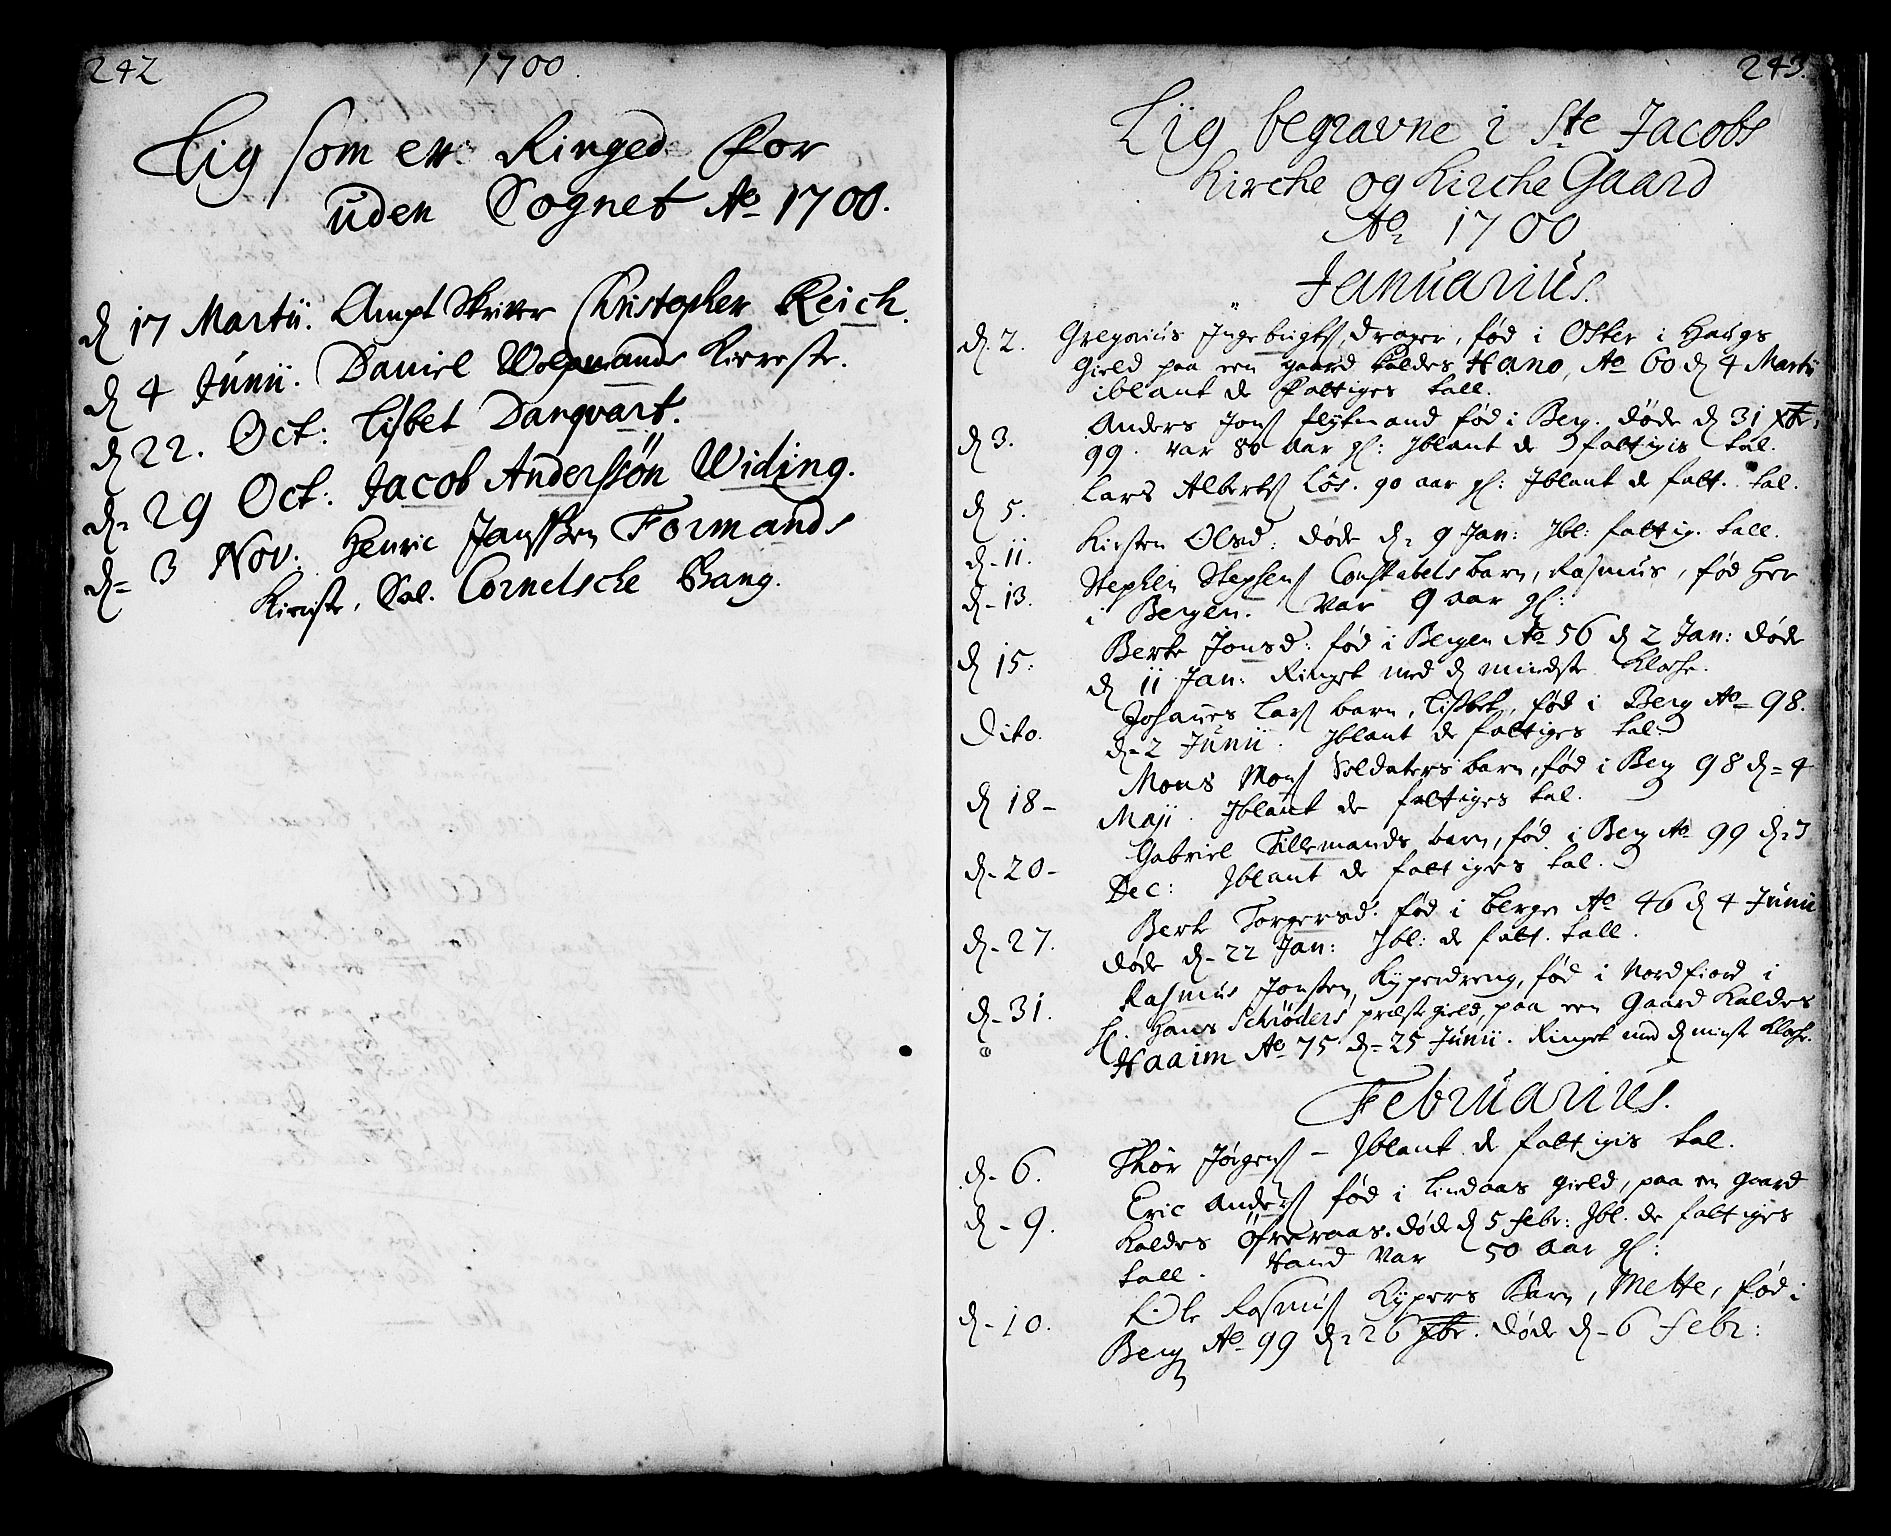 242 1700.
Lig som er Ringed for
uden Sognet Ao 1700.
d 17 Martii. Ampt Skriver Christopher Reich.
d 4 Junii. Daniel Kiereste.
d 22. Oct: Lisbet Danqvart.
d= 29 Oct: Jacob Anderssön Widing.
d= 3 Nov: Henric Janssen Formands
Kiereste, Sal. Cornelsche Bang.
243.
Lig begravne i Ste Jacobs
Kirche og Kirche Gaard
Ao 1700
Januarius.
d. 2. Gregorius Ingebrigts, Drager, fød i Oster i Haugs
gield paa een gaard kaldes Hano, Ao 60 d 4 Martii
iblant de fattiges tall.
d 3. Anders Jons fløtmand fød i Berg. døde d 31 xbr:
99. var 80 aar gl: Iblant de fattigis tal.
d 5. Lars Alberts Lös. 90 aar gl: Iblant de fatt. tal.
d-11. Kirsten Olsd: døde d= 9 Jan: Ibl: fattig. tall.
d-13. Stephen Stephens Constabels barn, Rasmus, fød her
i Bergen. var 9 aar gl:
d 15. Berte Jonsd: fød i Bergen Ao 56 d 2 Jan: døde
d 11 Jan: Ringet med d mindste Klocke.
Dito. Johannes Lars barn, Lisbet, fød i Berg Ao 98.
d-2 Junii. Iblant de fattiges tal.
d 18- Mons Mons Soldaters barn, fød i Berg 98 d=4
Maji. Iblant de fattiges tal.
d-20- Gabriel Tillemands barn, fød i Berg Ao 99 d=3
Dec: Iblant de fattiges tal.
d-27. Berte Torgersd: fød i Bergn Ao 46 d 4 Junii
døde d-22 Jan: Ibl: de fatt. tall.
d-31. Rasmus Jonsen, Kyperdreng, fød i Nordfiord i
H. Hans Schrøders præstegield, paa een Gaard Kaldes
Haaim Ao 75 d=25 Junii. Ringet med d minste Klocke.
Februarius.
d-6. Thör Jörgens - Iblant de fattigis tal.
d-9. Eric Anders fød i Lindaas gield, paa en gaard
kaldes Öfreraas. døde d 5 febr: Ibl. de fattiges
tall. Hand var 50 aar gl:
d-10. Ole Rasmus Kypers Barn, Mette, fød i
Berg Ao 99 d=26 døde d-6 Febr: